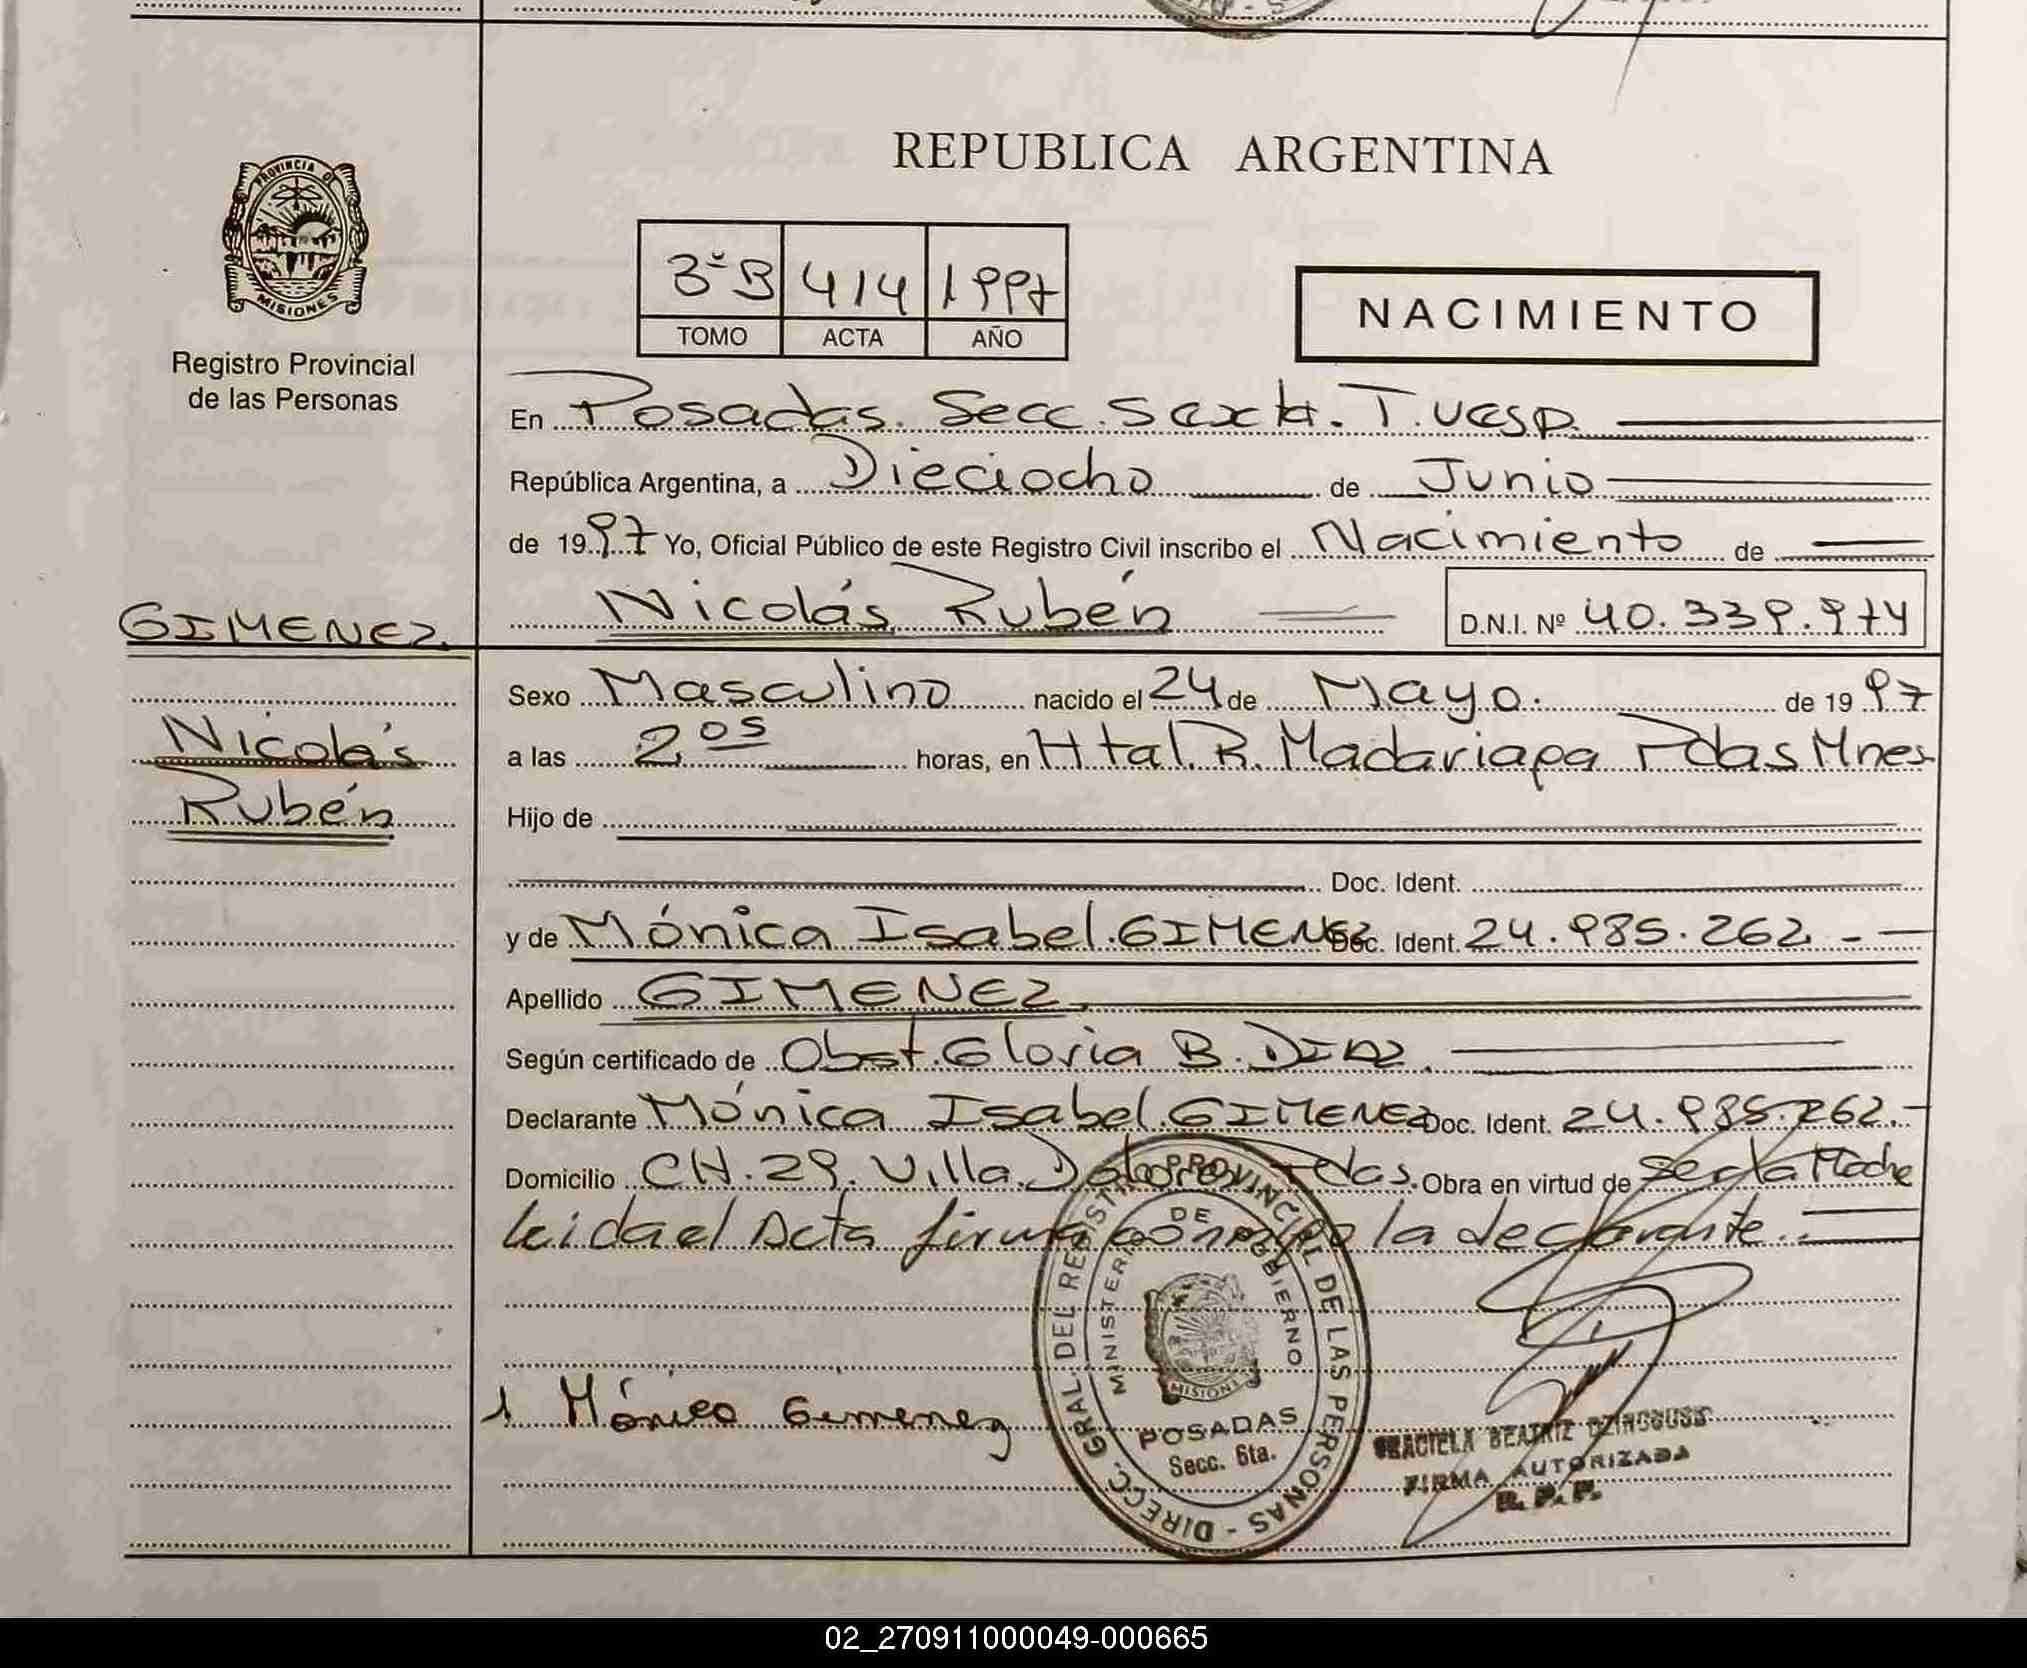 REPUBLICA ARGENTINA
PROVINCIA DE
MISIONES
Registro Provincial
de las Personas
3º B 414 1997
TOMO ACTA AÑO
NACIMIENTO
En Posadas. Secc. Sexta. T. Vesp.
República Argentina, a Dieciocho de Junio
de 1997 Yo, Oficial Público de este Registro Civil inscribo el Nacimiento de
Nicolás Rubén D.N.I. Nº 40.339.974
GIMENEZ
Nicolás
Rubén
Sexo Masculino nacido el 24 de Mayo. de 1997
a las 2 05 horas, en Htal. R. Madariaga Pdas Mnes
Hijo de
Doc. Ident.
y de Mónica Isabel. GIMENEZ Doc. Ident. 24.985.262.-
Apellido GIMENEZ.
Según certificado de Obst. Gloria B. DIAZ.
Declarante Mónica Isabel. GIMENEZ Doc. Ident. 24.985.262.-
Domicilio CH. 29. Villa Pdas. Obra en virtud de
leida el Acta firma conmigo la declarante.
1 Mónica Gimenez
DIRECC. GRAL. DEL REGISTRO PROVINCIAL DE LAS PERSONAS -
MINISTERIO DE GOBIERNO
MISIONES
POSADAS
Secc. 6ta.
GRACIELA BEATRIZ
FIRMA AUTORIZADA
R. P. P.
02_270911000049-000665